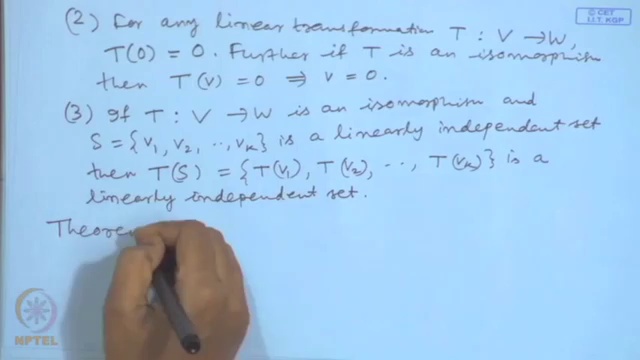 © CET
I.I.T. KGP
(2) For any linear transformation T : V → W,
T(0) = 0. Further if T is an isomorphism
then T(v) = 0 ⟹ v = 0.
(3) If T : V → W is an isomorphism and
S = {v₁, v₂, .., vₖ} is a linearly independent set
then T(S) = {T(v₁), T(v₂), .., T(vₖ)} is a
linearly independent set.
Theorem
NPTEL